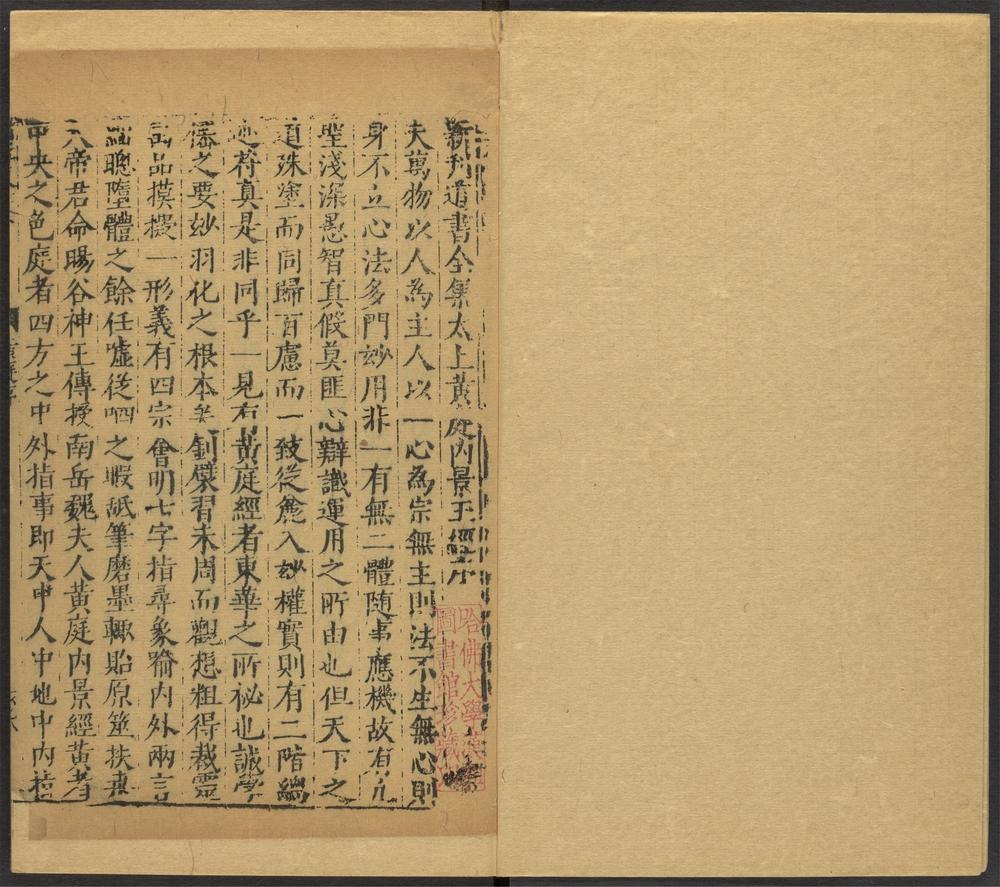 新刋道書全集太上黃庭內景玉經序
夫萬物以人為主人以一心為宗無主則法不生無心則
身不立心法多門玅用非一有無二體隨事應機故有凡
聖淺深愚智真假莫匪心辯識運用之所由也但天下之
道殊塗而同歸百慮而一致從麄入玅權實則有二階綱
迹符真是非同乎一見右黃庭經者東華之所秘也誠學
僊之要玅羽化之根本矣釗襞習未周而觀想粗得裁靈
品摸擬一形義有四宗會明七字指尋象諭內外兩言
聰墮體之餘任噓從呬之暇舐筆磨墨輙貽原筮扶桒
大帝君命暘谷神王傳授南岳魏夫人黃庭內景經黃者
中央之色庭者四方之中外指事即天中人中地中內指
哈佛大學漢和
圖書館珍藏印